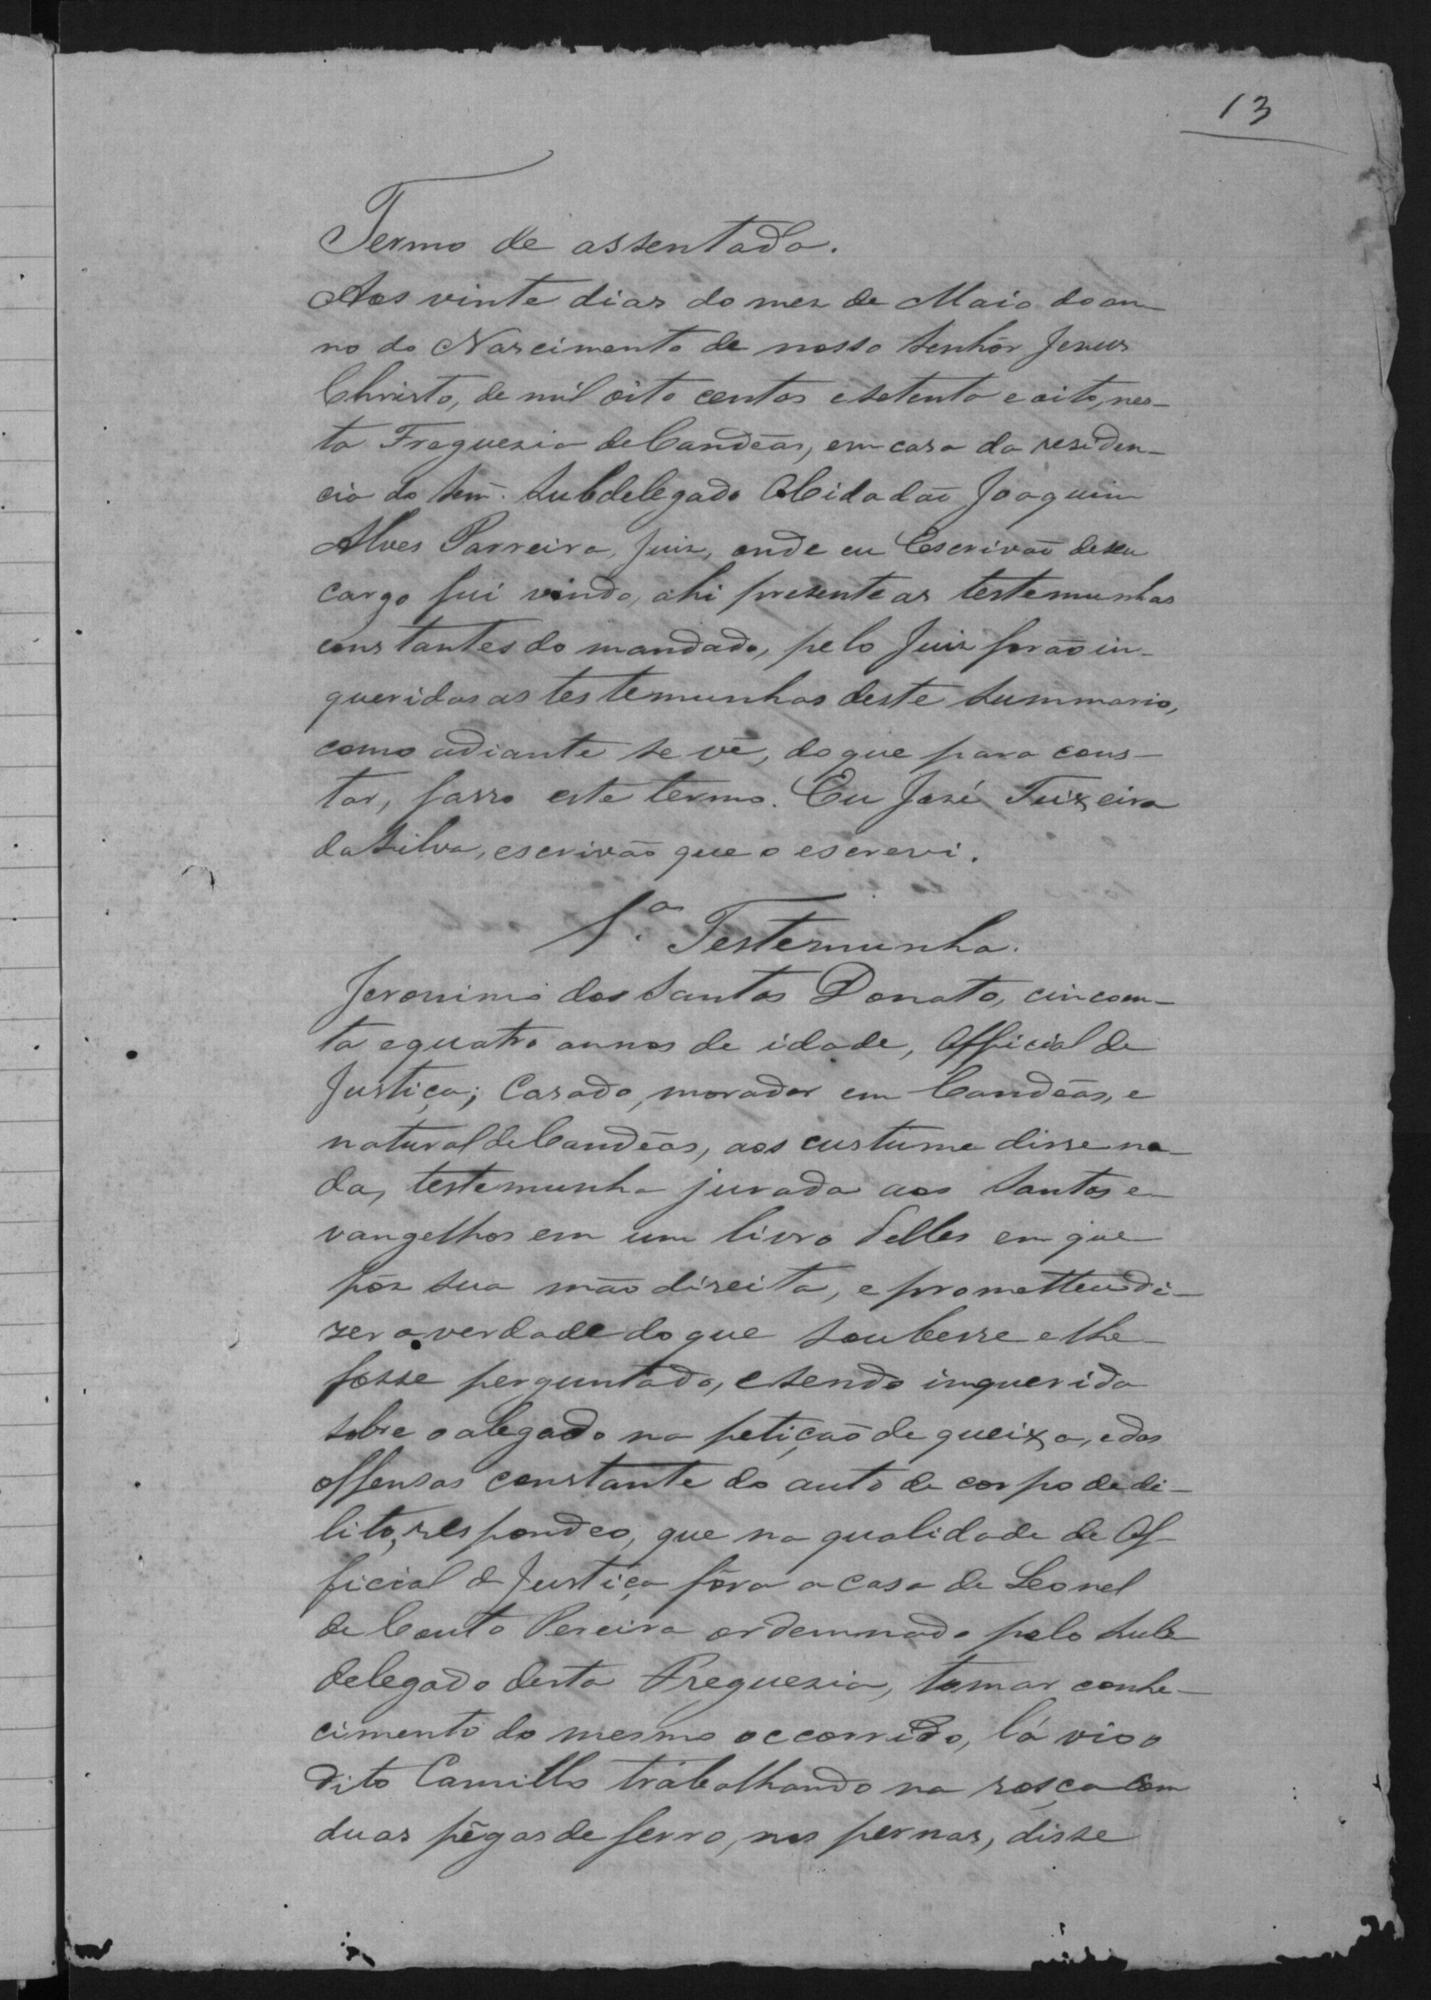 13
Termo de assentada.
Aos vinte dias do mez de Maio do an
no do Nascimento de nosso Senhor Jezus
Christo, de mil oito centos e setenta e oito, nes-
ta Freguezia de Candêas, em casa da residen-
cia do Senr. Subdelegado Cidadão Joaquim
Alves Parreira, Juiz, onde eu Escrivão de seu
cargo fui vindo, ahi presente as testemunhas
constantes do mandado, pelo Juiz forão in-
queridas as testemunhas deste Summario,
como adiante se vê, do que para cons-
tar, fasso este termo. Eu José Teixeira
da Silva, escrivão que o escrevi.
1.ª Testemunha.
Jeronimo dos Santos Donato, cincoen-
ta e quatro annos de idade, Official de
Justiça; Casado, morador em Candêas, e
natural de Candêas, aos custume disse na-
da, testemunha jurada aos Santos e-
vangelhos em um livro delles em que
pôz sua mão direita, e prometteu di-
zer a verdade do que soubesse e lhe
fosse perguntado, e sendo inquerida
sobre o alegado na petição de queixa, e das
offensas constante do auto de corpo de di-
lito, respondeo, que na qualidade de Of-
ficial de Justiça fôra a casa de Leonel
de Couto Pereira ordemnado pelo Sub
delegado desta Freguezia, tomar conhe-
cimento do mesmo occorrido, lá vio o
dito Camillo trabalhando na rosça com
duas pêgas de ferro, nas pernas, disse